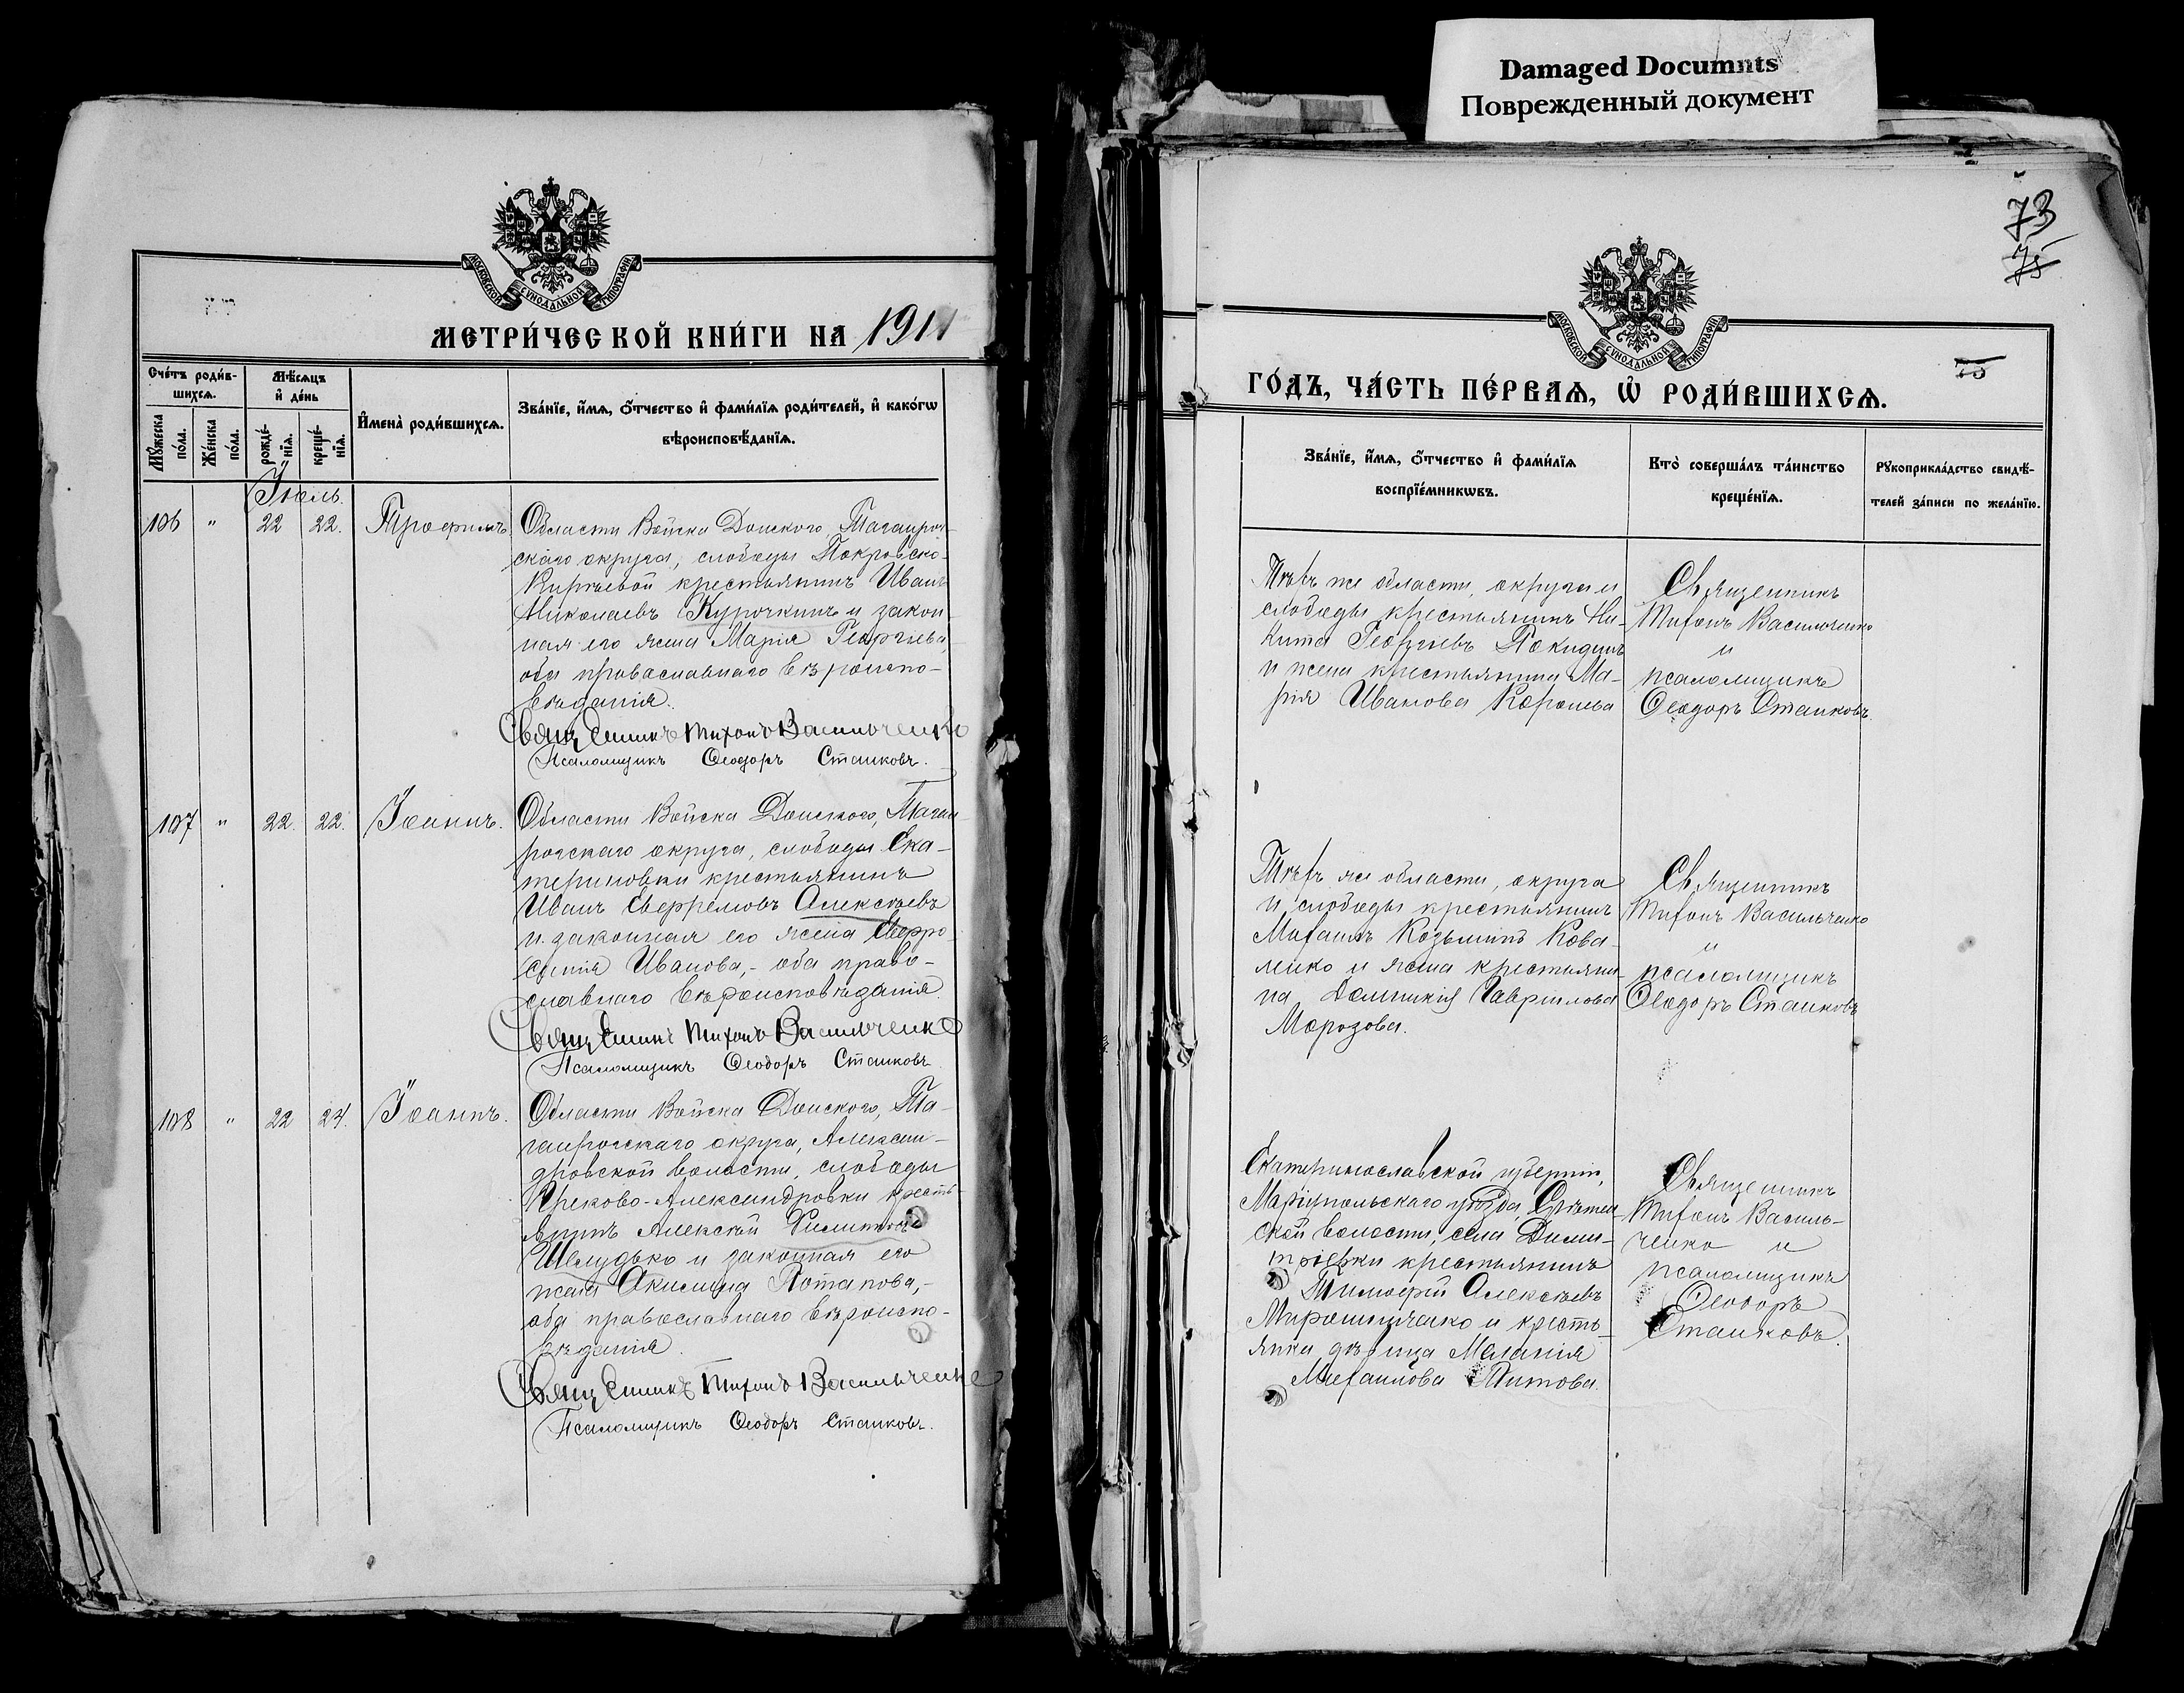 Damaged Documnts
Поврежденный документ
МОСКОВСКОЙ СУНОДАЛЬНОЙ ТИПОГРАФІИ
МЕТРИ́ЧЕСКОЙ КНИ́ГИ НА 1911
Сче́тъ роди́в-
шихсѧ.
Мꙋ́жеска по́ла.
Же́нска по́ла.
Мѣ́сѧцъ
и҆ де́нь
рожде́-
нїѧ.
креще́-
нїѧ.
И҆мена̀ роди́вшихсѧ.
Зва́нїе, и҆́мѧ, ѻ҆́тчество и҆ фами́лїѧ роди́телей, и҆ како́гѡ
вѣроисповѣ́данїѧ.
Іюль
106 " 22 22. Трофимъ
Области Войска Донского, Таганрог-
скаго округа, слободы Покровско-
Киреевой крестьянинъ Иванъ
Николаевъ Курочкинъ и закон-
ная его жена Марія Георгіева,
оба православнаго вѣроиспо-
вѣданія.
Священникъ Тихонъ Васильченко
Псаломщикъ Ѳеодоръ Станковъ.
107 " 22. 22. Іоаннъ.
Области Войска Донского, Таган-
рогскаго округа, слободы Ека-
териновки крестьянинъ
Иванъ Евфремовъ Алексѣевъ
и законная его жена Евфро-
синія Иванова,- оба право-
славнаго вѣроисповѣданія.
Священникъ Тихонъ Васильченко
Псаломщикъ Ѳеодоръ Станковъ
108 " 22 24. Іоаннъ.
Области Войска Донского, Та-
ганрогскаго округа, Алексан-
дровской волости, слободы
Греково-Александровки кресть-
янинъ Алексѣй Филиповъ
Шелудько и законная его
жена Акилина Потапова,-
оба православнаго вѣроиспо-
вѣданія.
Священникъ Тихонъ Васильченко
Псаломщикъ Ѳеодоръ Станковъ.
73
75
75
МОСКОВСКОЙ СУНОДАЛЬНОЙ ТИПОГРАФІИ
ГО́ДЪ, ЧА́СТЬ ПЕ́РВАѦ, Ѡ҆ РОДИ́ВШИХСѦ.
Зва́нїе, и҆́мѧ, ѻ҆́тчество и҆ фами́лїѧ
воспрїе́мникѡвъ.
Кто̀ соверша́лъ та́инство
креще́нїѧ.
Рꙋкоприкла́дство свидѣ́-
телей за́писи по жела́нїю.
Тѣхъ же области, округа и
слободы крестьянинъ Ни-
кита Георгіевъ Покидинъ
и жена крестьянина Ма-
рія Иванова Королева
Священникъ
Тихонъ Васильченко
и
псаломщикъ
Ѳеодоръ Станковъ.
Тѣхъ же области, округа
и слободы крестьянинъ
Михаилъ Козьминъ Кова-
ленко и жена крестьяни-
на Домникія Гавріилова
Морозова.
Священникъ
Тихонъ Васильченко
и
псаломщикъ
Ѳеодоръ Станковъ
Екатеринославской губерніи,
Маріупольскаго уѣзда
ской волости, села Дими-
тріевки крестьянинъ
Тимофей Алексѣевъ
Мирошниченко и кресть-
янка дѣвица Меланія
Михаилова Титова.
Священникъ
Тихонъ Василь-
ченко и
псаломщикъ
Ѳеодоръ
Станковъ.